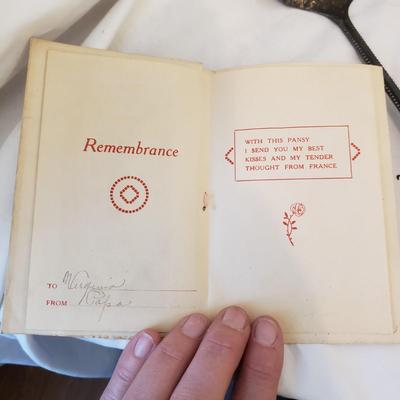 Remembrance
TO Virginia
FROM Papa
WITH THIS PANSY
I SEND YOU MY BEST
KISSES AND MY TENDER
THOUGHT FROM FRANCE